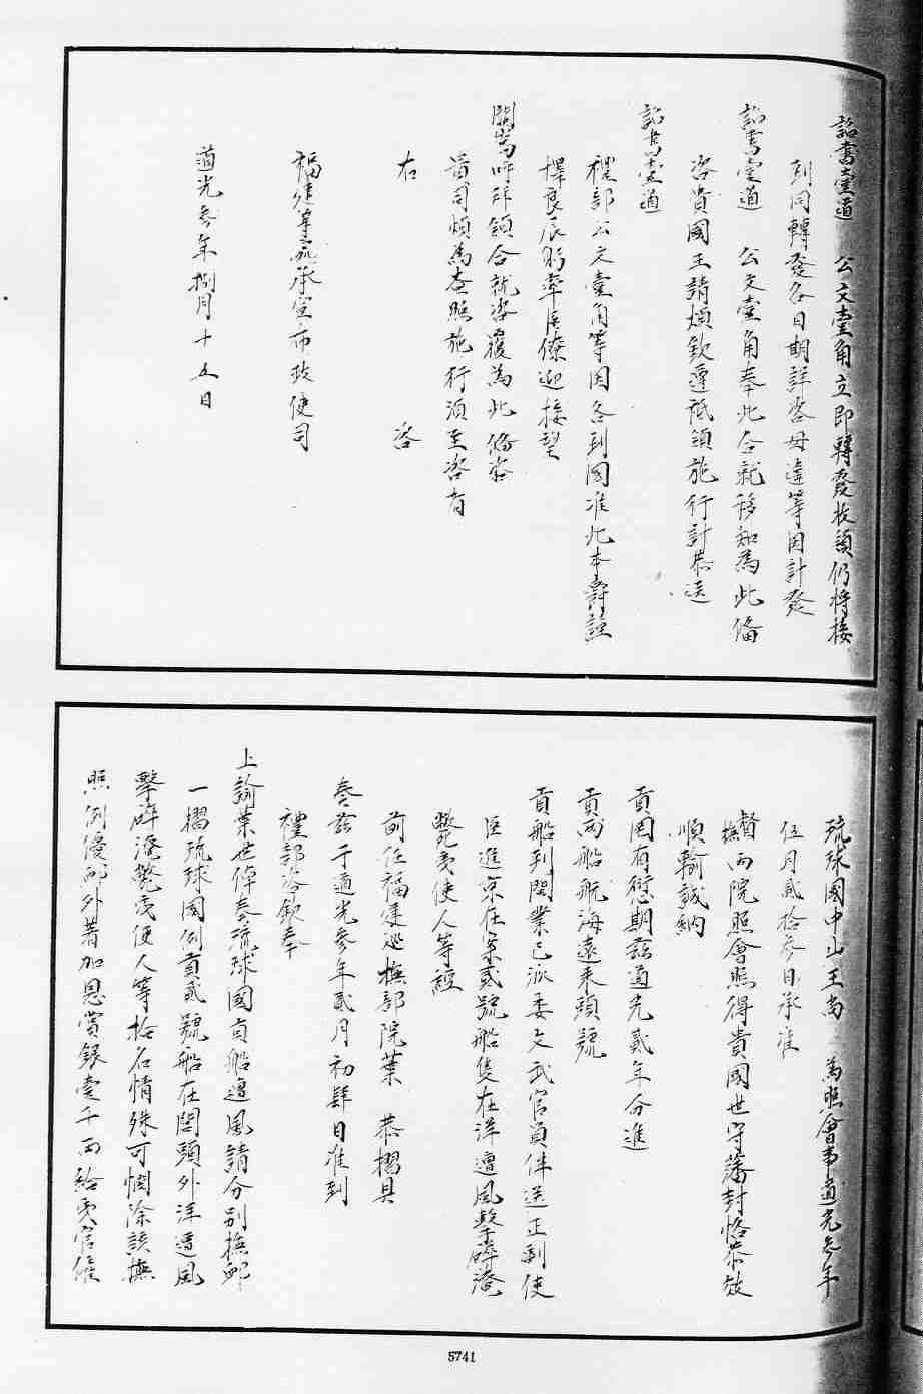 詔書壹道　公文壹角立即轉發收領仍將接
到同轉發各日期詳咨毋違等因計發
詔書壹道　公文壹角奉此合就移知為此備
咨貴國王請煩欽遵祗領施行計恭送
詔書壹道
禮部公文壹角等因各到國准此本爵謹
擇良辰躬率臣僚迎接望
闕嵩呼拜領合就咨覆為此備咨
貴司煩為查照施行須至咨者
右　咨
福建等處承宣布政使司
道光參年捌月十五日
琉球國中山王尚　為照會事道光參年
伍月貳拾參日承准
督撫兩院照會照得貴國世守藩封恪恭效
順輸誠納
貢罔有愆期茲道光貳年分進
貢兩船航海遠來頭號
貢船到閩業已派委文武官員伴送正副使
臣進京在案貳號船隻在洋遭風擊碎淹
斃夷使人等經
前任福建巡撫部院葉　恭摺具
奏茲于道光參年貳月初肆日准到
禮部咨欽奉
上諭葉世倬奏琉球國貢船遭風請分別撫卹
一摺琉球國例貢貳號船在閩頭外洋遭風
擊碎淹斃夷使人等拾名情殊可憫除該撫
照例優卹外著加恩賞銀壹千兩給夷官催
5741